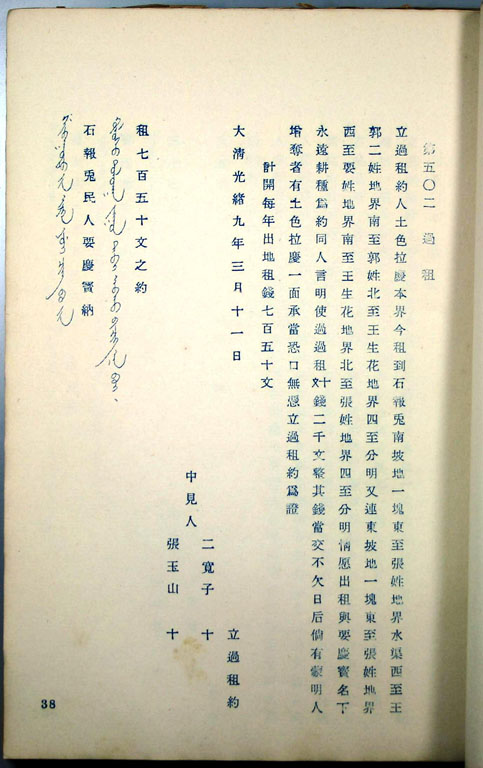 第五〇二　過租
立過租約人土色拉慶本界今租到石報兎南坡地一塊東至張姓地界水渠西至王
郭二姓地界南至郭姓北至王生花地界四至分明又連東坡地一塊東至張姓地界
西至要姓地界南至王生花地界北至張姓地界四至分明情愿出租與要慶寶名下
永遠耕種爲約同人言明使過過租錢二千文整其錢當交不欠日后倘有蒙明人
增奪者有土色拉慶一面承當恐口無憑立過租約爲證
計開每年出地租錢七百五十文
大淸光緖九年三月十一日
立過租約
中見人　二寬子　十
張玉山　十
租七百五十文之約
石報兎民人要慶寶納
38